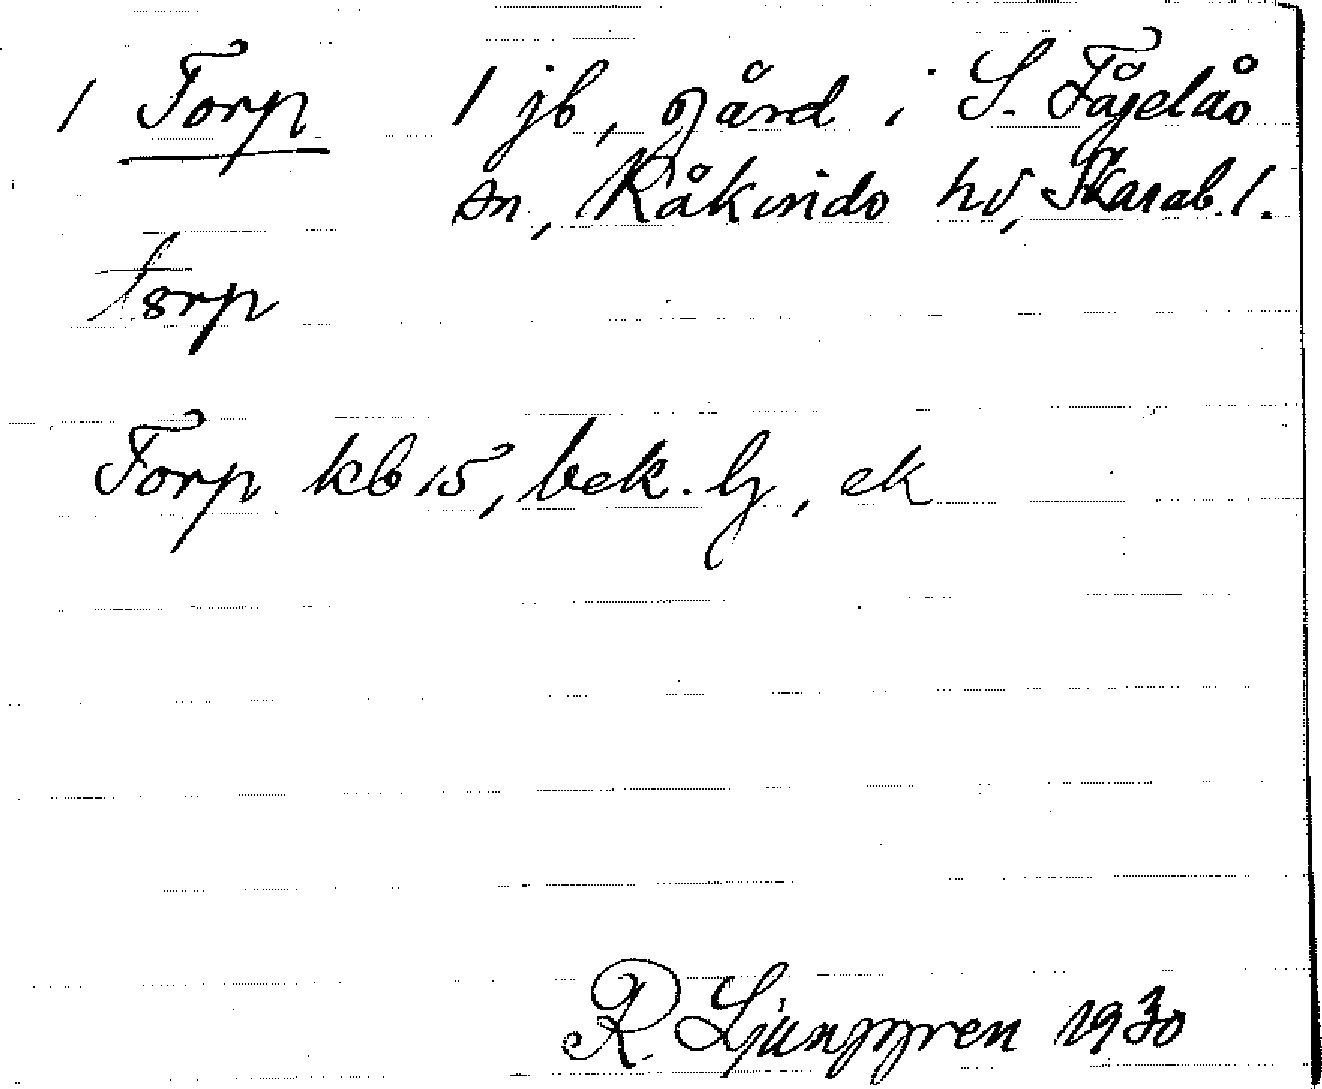 1 Torp 1 jb, gård i S. Fågelås
sn, Kåkinds hd, Skarab. l.
torp
Torp kb 15, bek. lj, ek
R. Ljunggren 1930